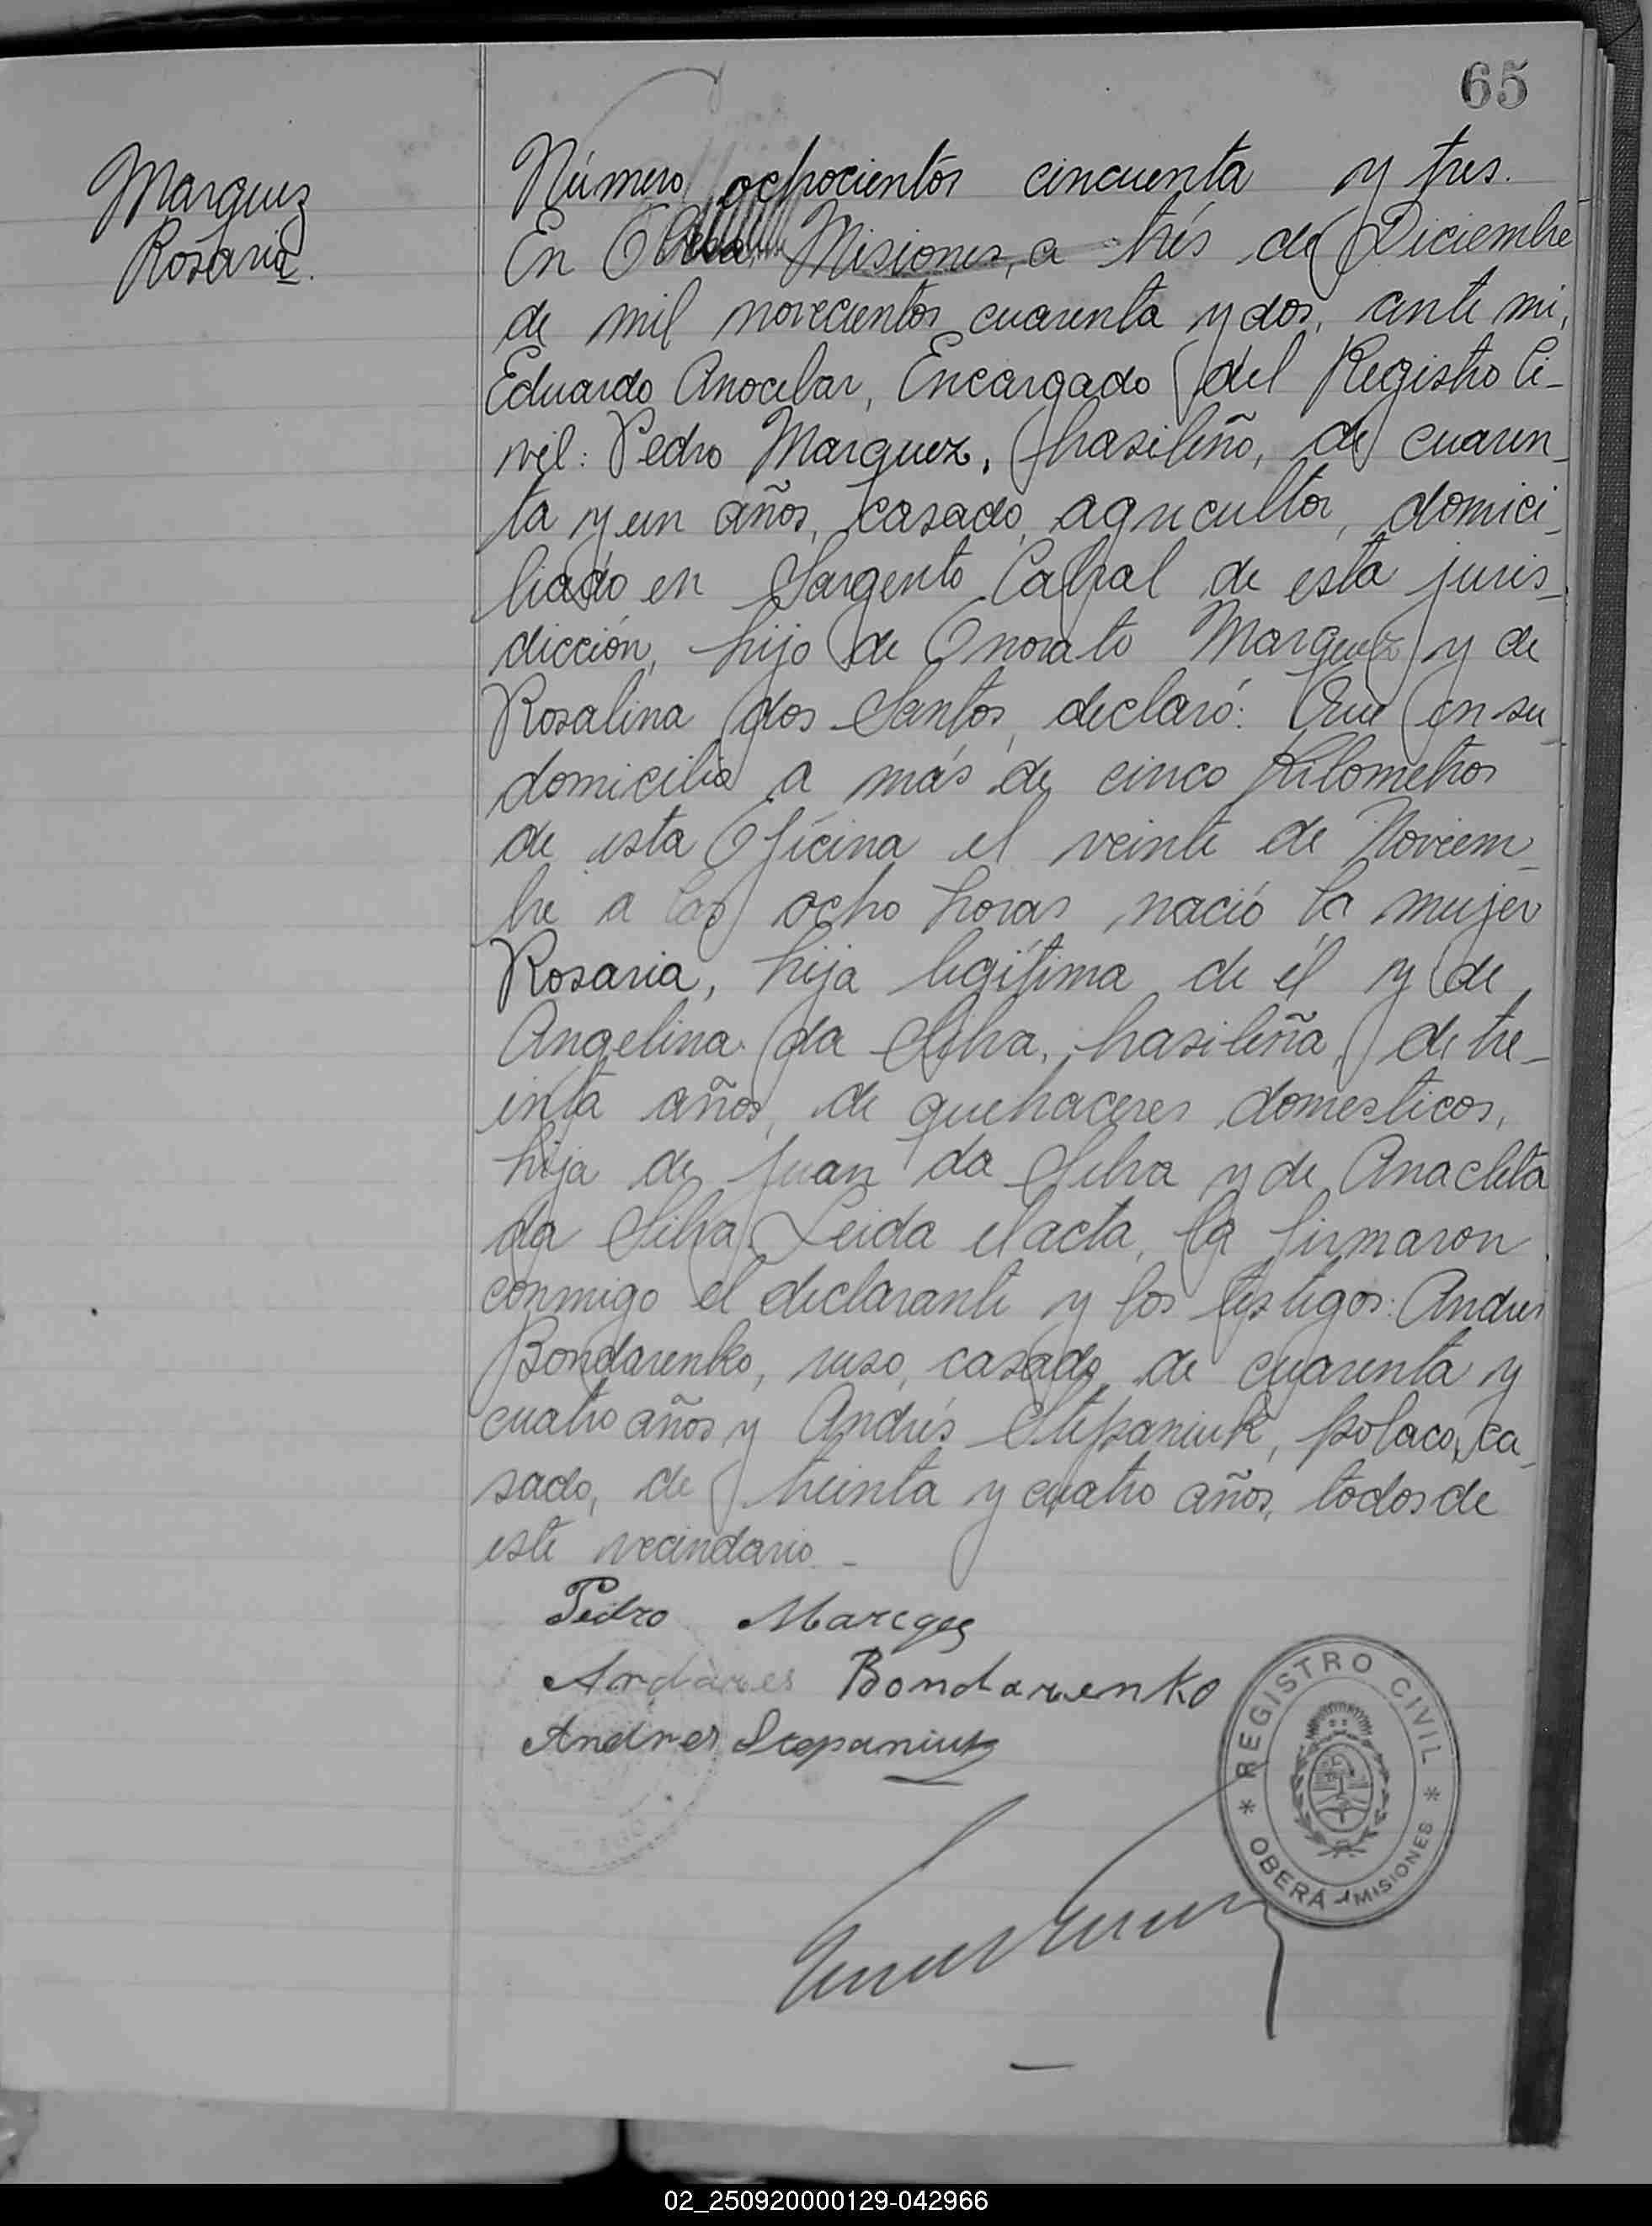 65
Marquez
Rosaria.
Número ochocientos cincuenta y tres.
En Oberá, Misiones, a trés de Diciembre
de mil novecientos cuarenta y dos, ante mi,
Eduardo Anocibar, Encargado del Registro Ci-
vil: Pedro Marquez, brasileño, de cuaren-
ta y un años, casado, agricultor, domici-
liado en Sargento Cabral de esta juris-
dicción, hijo de Onorato Marquez y de
Rosalina dos Santos, declaró: Que en su
domicilio a más de cinco kilometros
de esta Oficina el veinte de Noviem-
bre a las ocho horas nació la mujer
Rosaria, hija legítima de él y de
Angelina da Silva, brasileña, de tre-
inta años, de quehaceres domesticos,
hija de Juan da Silva y de Anacleta
da Silva. Leida el acta, la firmaron
conmigo el declarante y los testigos: Andrés
Bondarenko, ruso, casado, de cuarenta y
cuatro años y Andrés Stepaniuk, polaco, ca-
sado, de treinta y cuatro años, todos de
este vecindario.-
Pedro
Andares Bondarenko
Andres Stepaniuk
REGISTRO CIVIL
* OBERÁ - MISIONES *
02_250920000129-042966